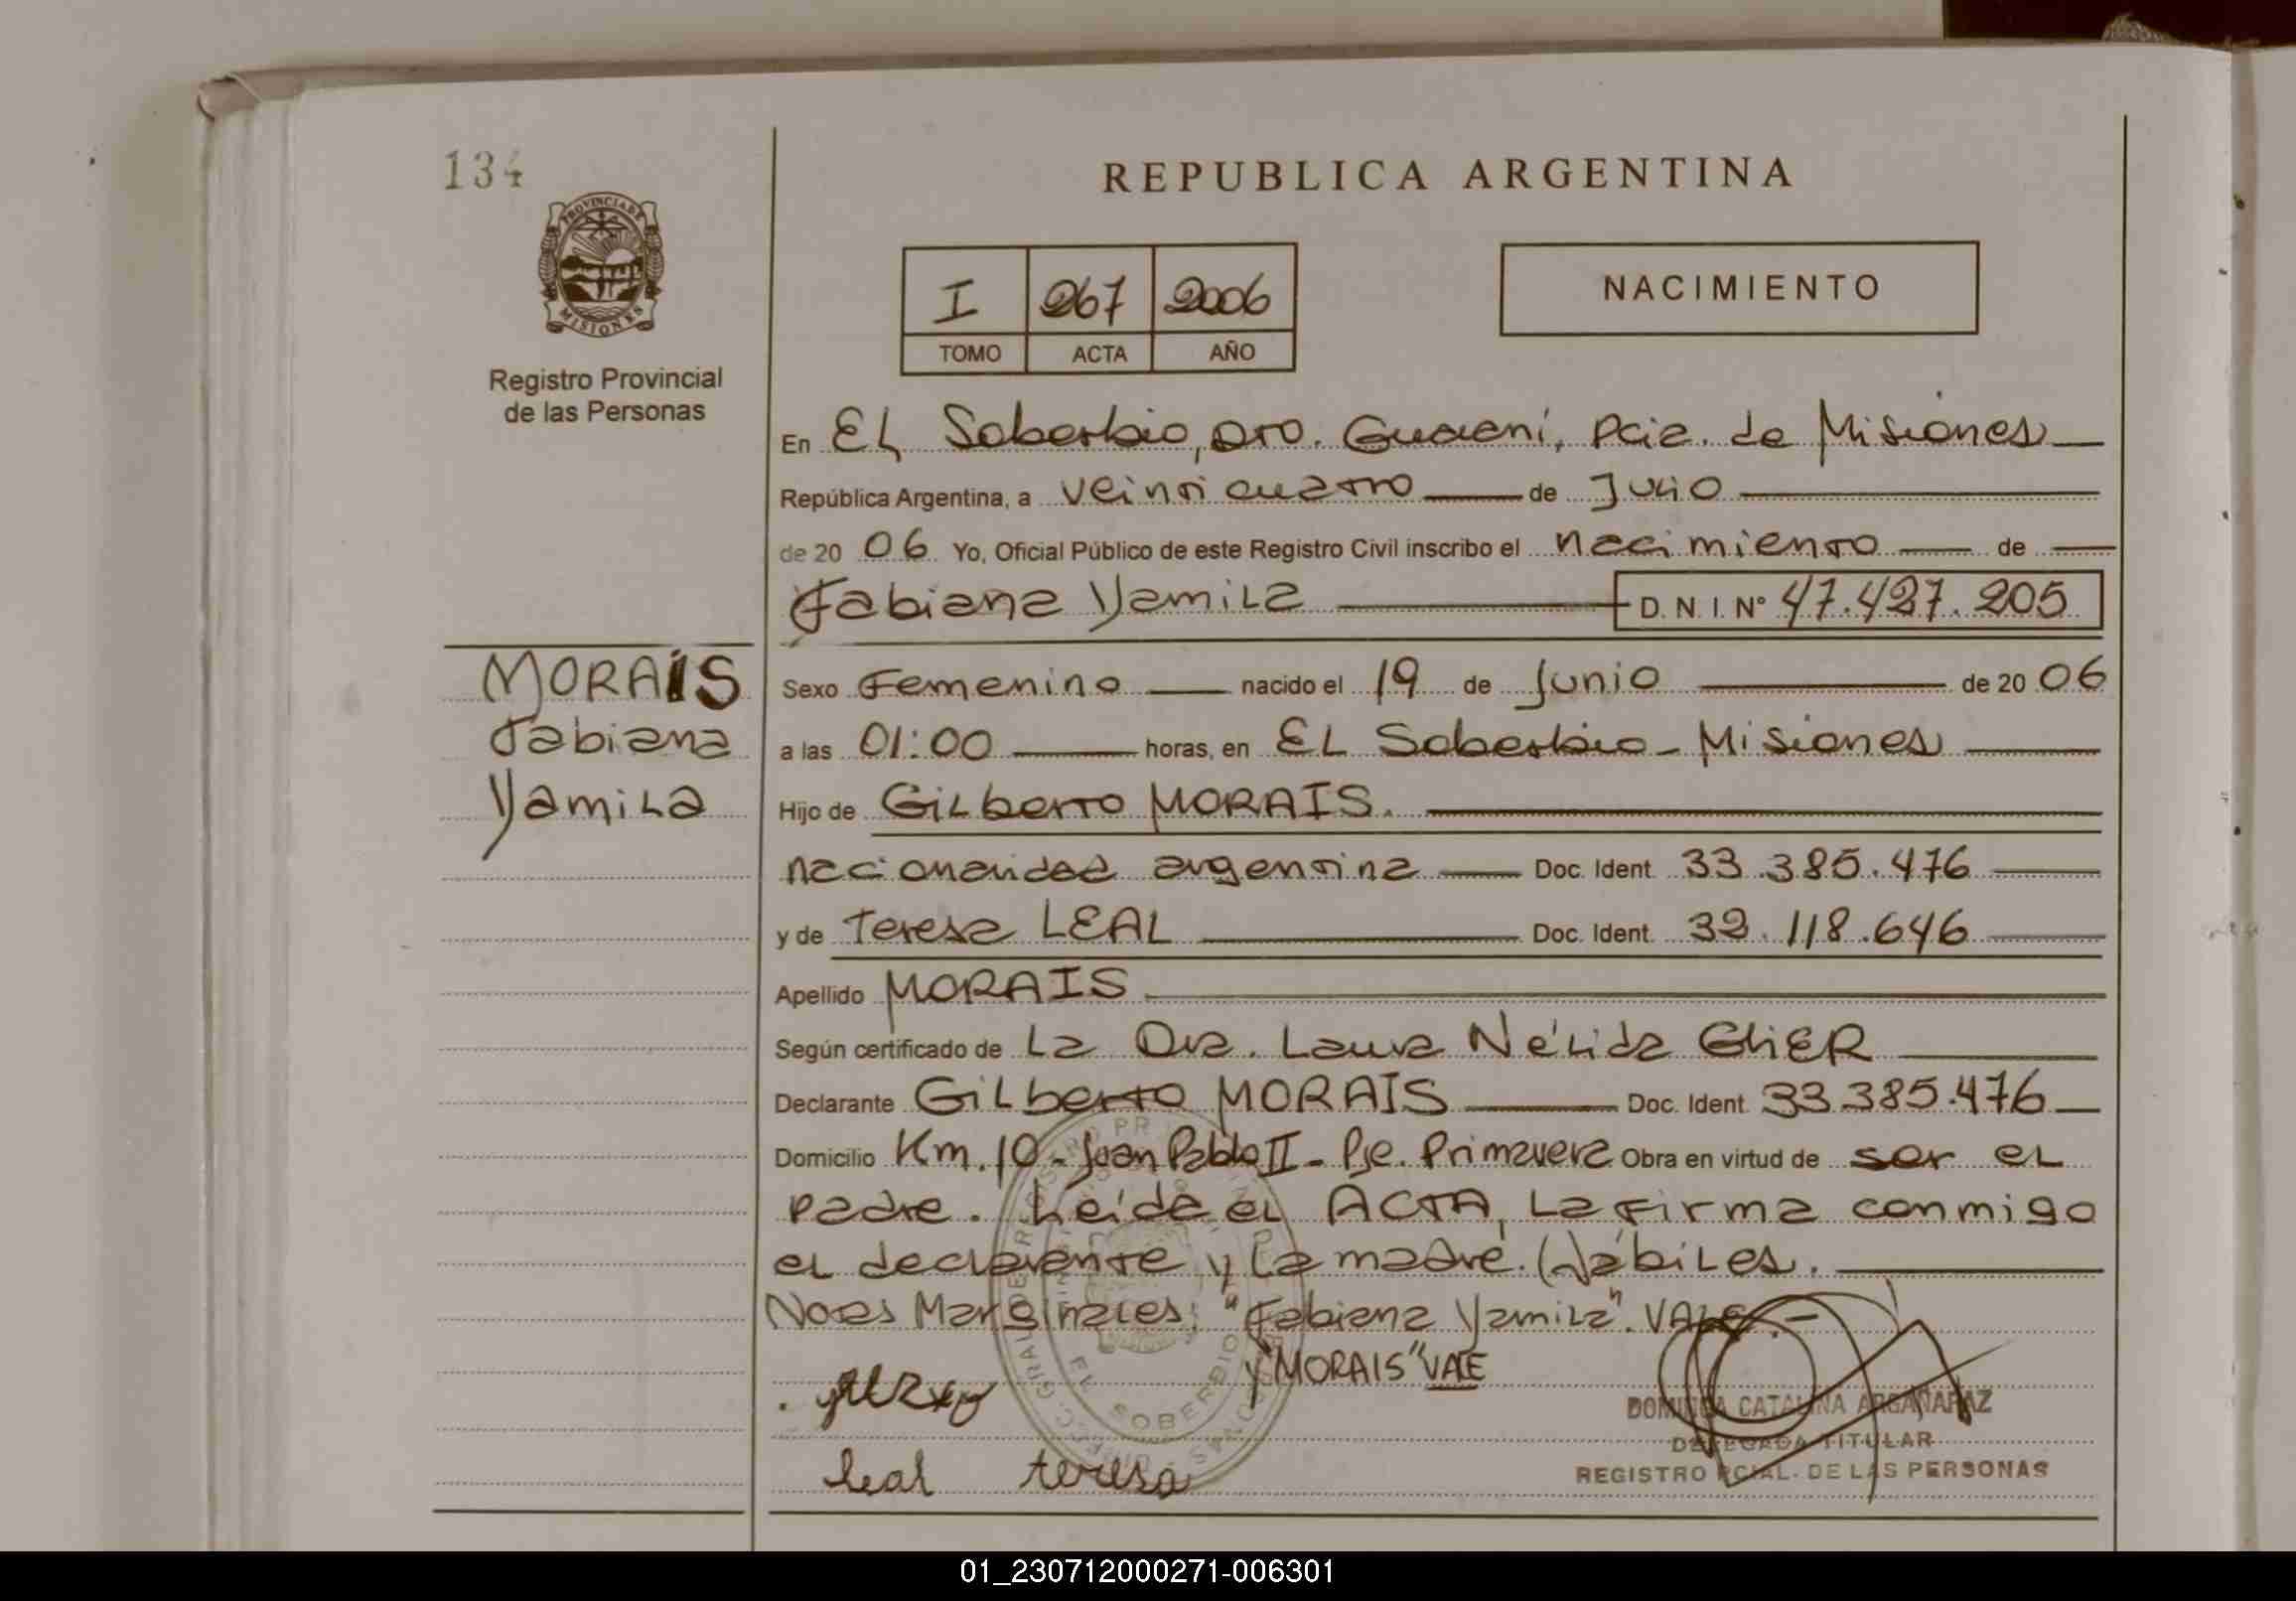 134
PROVINCIA DE
MISIONES
Registro Provincial
de las Personas
REPUBLICA ARGENTINA
I 267 2006
TOMO ACTA AÑO
NACIMIENTO
En El Soberbio, Dto. Guaraní, Pcia. de Misiones
República Argentina, a veinticuatro de Julio
de 20 06 Yo, Oficial Público de este Registro Civil inscribo el nacimiento de
Fabiana Yamila D. N. I. Nº 47.427.205
MORAIS
Fabiana
Yamila
Sexo Femenino nacido el 19 de Junio de 20 06
a las 01:00 horas, en El Soberbio - Misiones
Hijo de Gilberto MORAIS.
nacionalidad argentina Doc. Ident. 33.385.476
y de Teresa LEAL Doc. Ident. 32.118.646
Apellido MORAIS
Según certificado de La Dra. Laura Nélida
Declarante Gilberto MORAIS Doc. Ident. 33.385.476
Domicilio Km. 10 - Juan Pablo II - Pje. Primavera Obra en virtud de ser el
padre. Leída el ACTA, la firma conmigo
el declarante y la madre. Hábiles.
Notas Marginales: "Fabiana Yamila". VALE.-
y "MORAIS" VALE
EL SOBERBIO
leal teresa
DOMINGA CATALINA ARGAÑARAZ
DELEGADA TITULAR
REGISTRO PCIAL. DE LAS PERSONAS
01_230712000271-006301